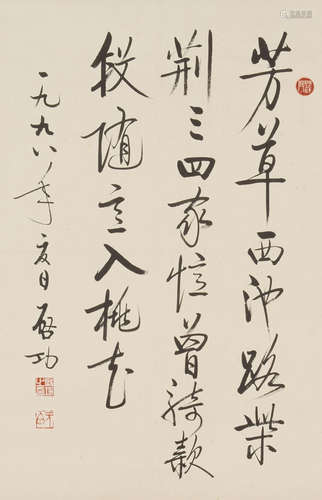 芳草西池路柴
荆三四家忆曾骑款
段随意入桃花
一九九八年夏日启功